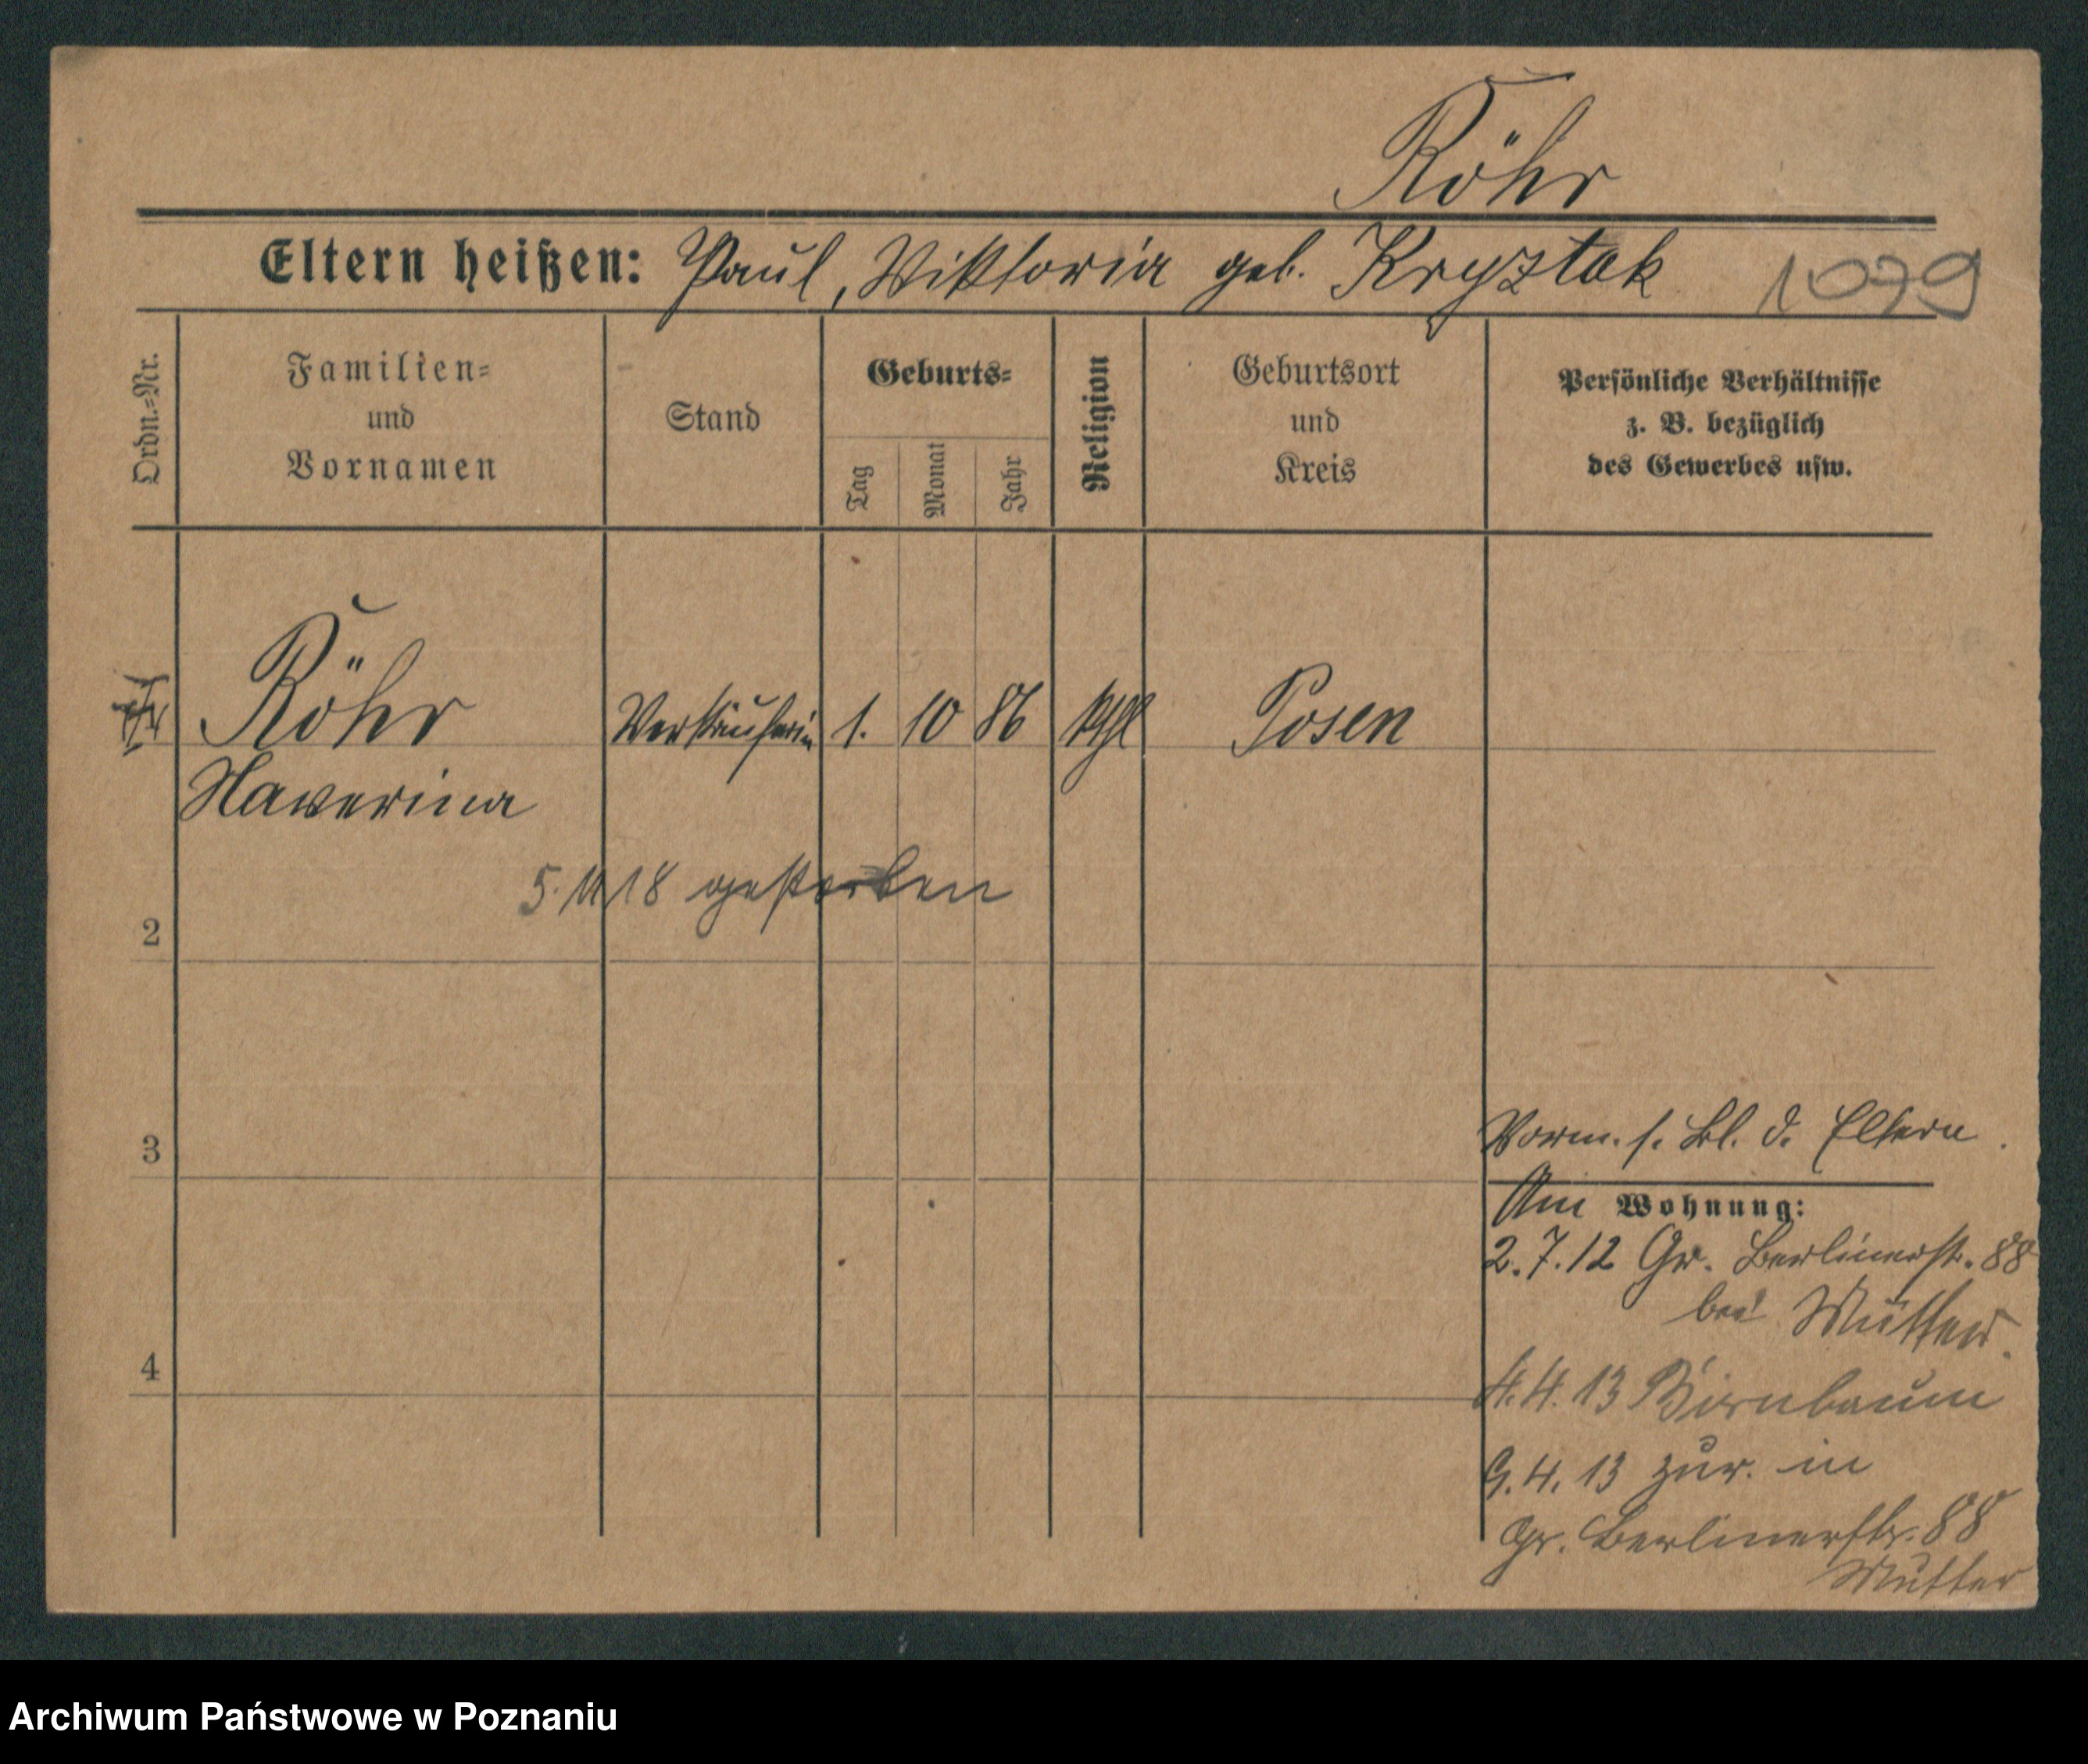 Röhr
Eltern heißen: Paul, Viktoria geb. Krysztok
1079
Ordn.=Nr.
Familien=
und
Vornamen
Stand
Geburts=
Tag
Monat
Jahr
Religion
Geburtsort
und
Kreis
Persönliche Verhältnisse
z. B. bezüglich
des Gewerbes usw.
Röhr Verkäuferin 1. 10 86 kthl Posen
5. 11 18 gestorben
2
3
Vorm. s. Bl. d. Eltern.
Wohnung:
2. 7. 12 Gr. Berlinerstr. 88
bei Mutter.
4. 4. 13 Birnbaum
4
9. 4. 13 zur. in
Gr. Berlinerstr. 88
Mutter
Archiwum Państwowe w Poznaniu